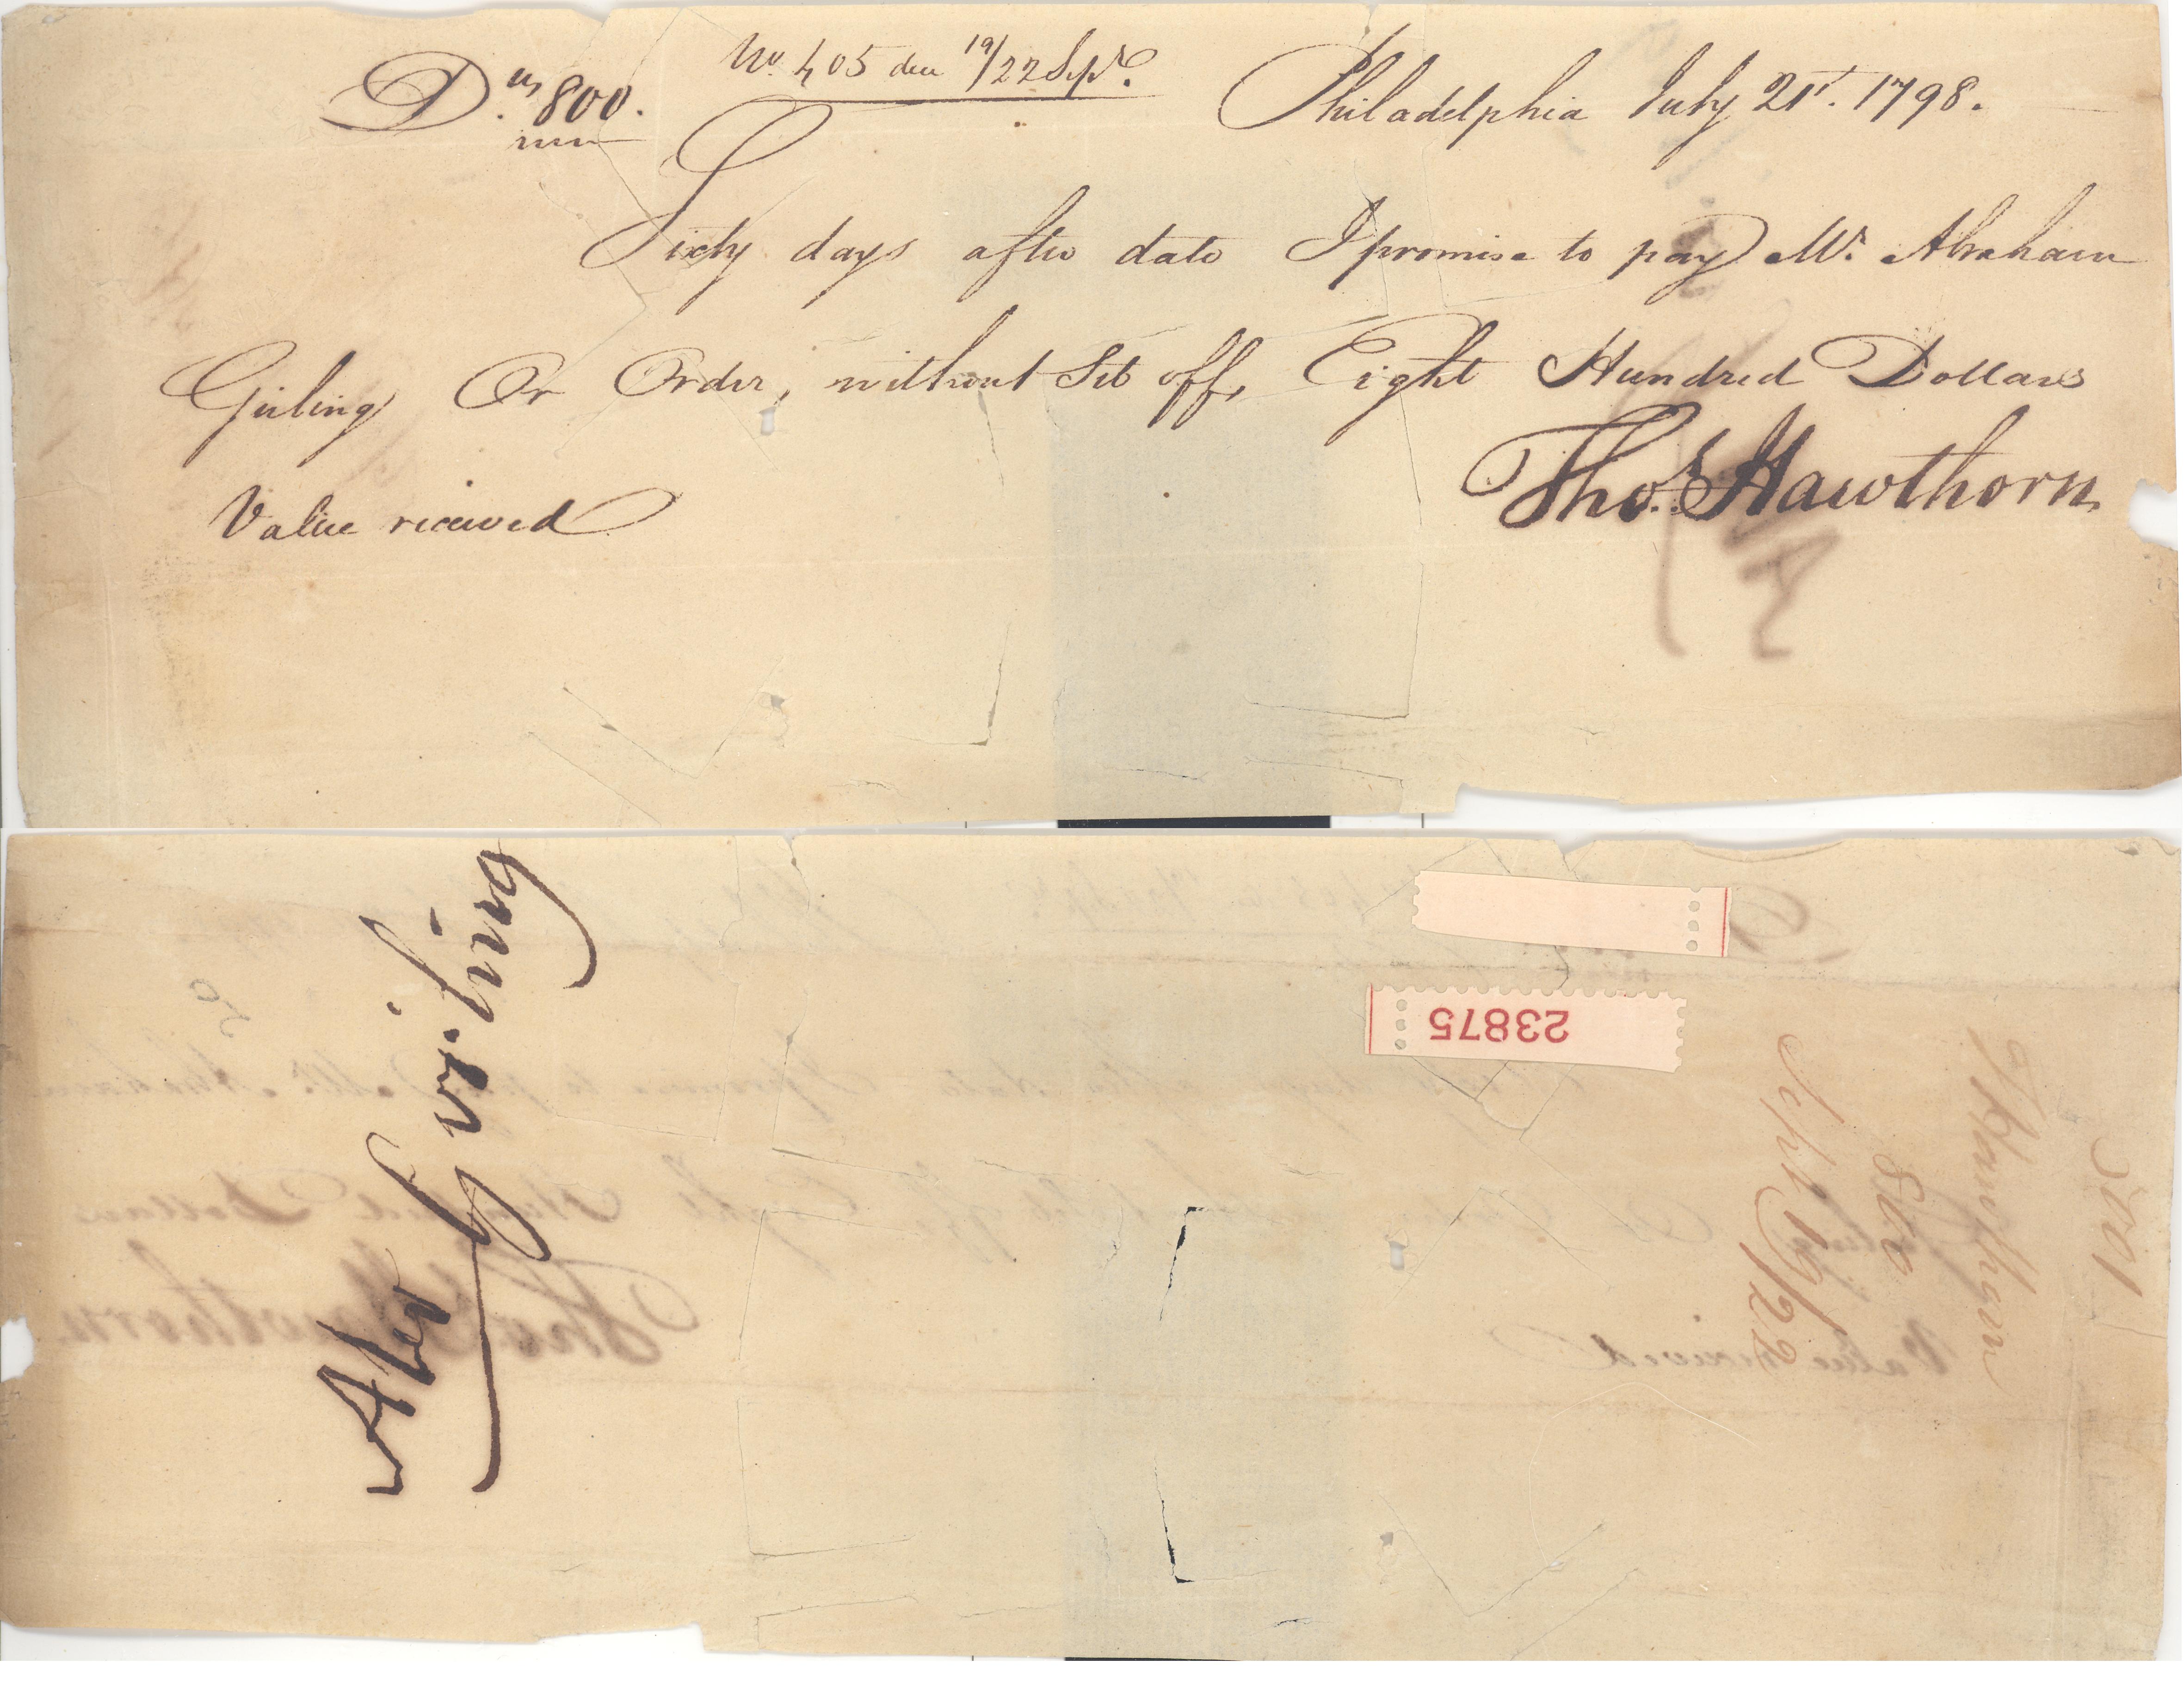 Drs 800. No. 405 due 19/22 Sepr. Philadelphia July 21st. 1798.
Sixty days after date I promise to pay Mr. Abraham
Guling Or Order, without Set off, Eight Hundred Dollars
Value received
Thos. Hawthorn
Abr Guiling
23875
Sept 19/22
800
THawthorn